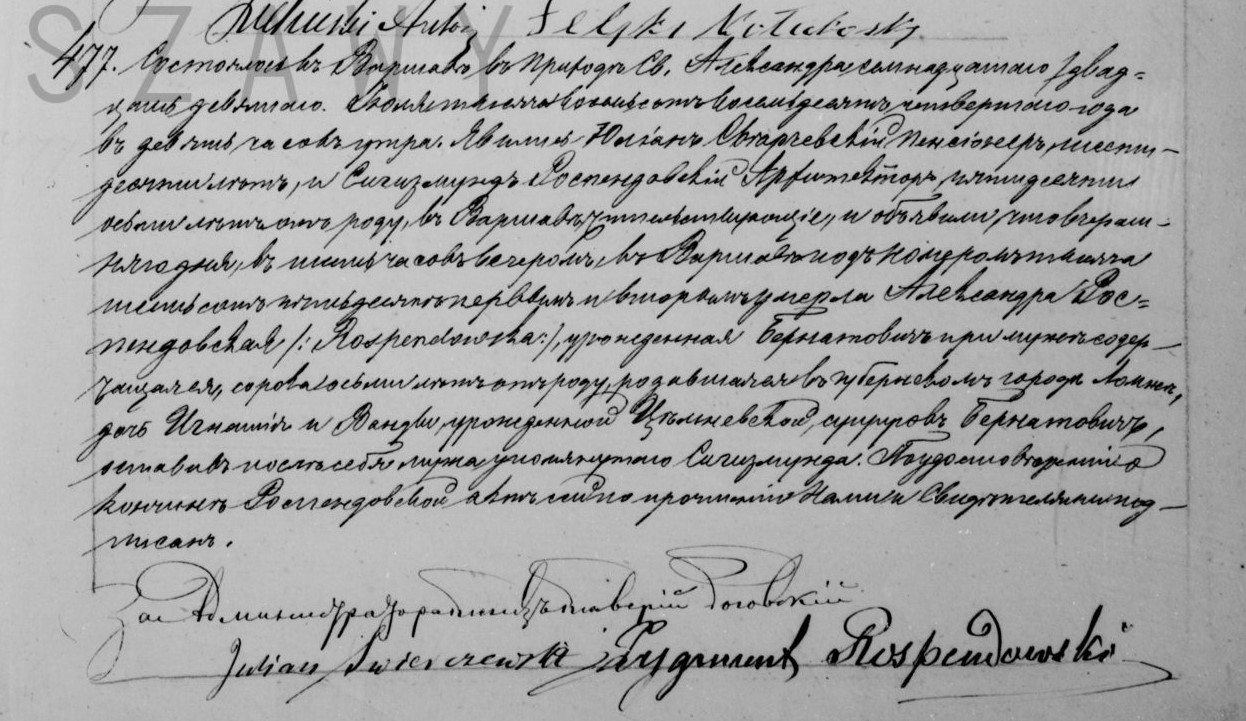 SZAWY
477. Состоялось въ Варшавѣ въ приходѣ Св. Александра семнадцатаго /двад=
цать девятаго. Іюля тысяча восемьсотъ восемьдесятъ четвертаго года
въ девять часовъ утра. Явились Юліанъ Сверчевскій Пенсіонеръ, шести-
десяти лѣтъ, и Сигизмундъ Роспендовскій Архитекторъ, пятидесяти
осьми лѣтъ отъ роду, въ Варшавѣ жительствующіе, и объявили, что вчераш-
няго дня, въ шесть часовъ вечеромъ, въ Варшавѣ подъ номеромъ тысяча
шестьсотъ пятьдесятъ первымъ и вторымъ умерла Александра Рос=
пендовская /: Rospendowska :/, урожденная Бернатовичъ при мужѣ содер-
жащаяся, сорока осьми лѣтъ отъ роду, родившаяся въ губерневомъ городѣ Ломжѣ,
дочь Игнатія и Ванды, урожденной супруговъ Бернатовичъ,
оставивъ послѣ себя мужа упомянутаго Сигизмунда. По удостовѣреніи о
кончинѣ Роспендовской актъ сей по прочтеніи Нами и Свидѣтелями под-
писанъ.
За Администратора
Julian Swierczewski Zygmunt Rospendowski